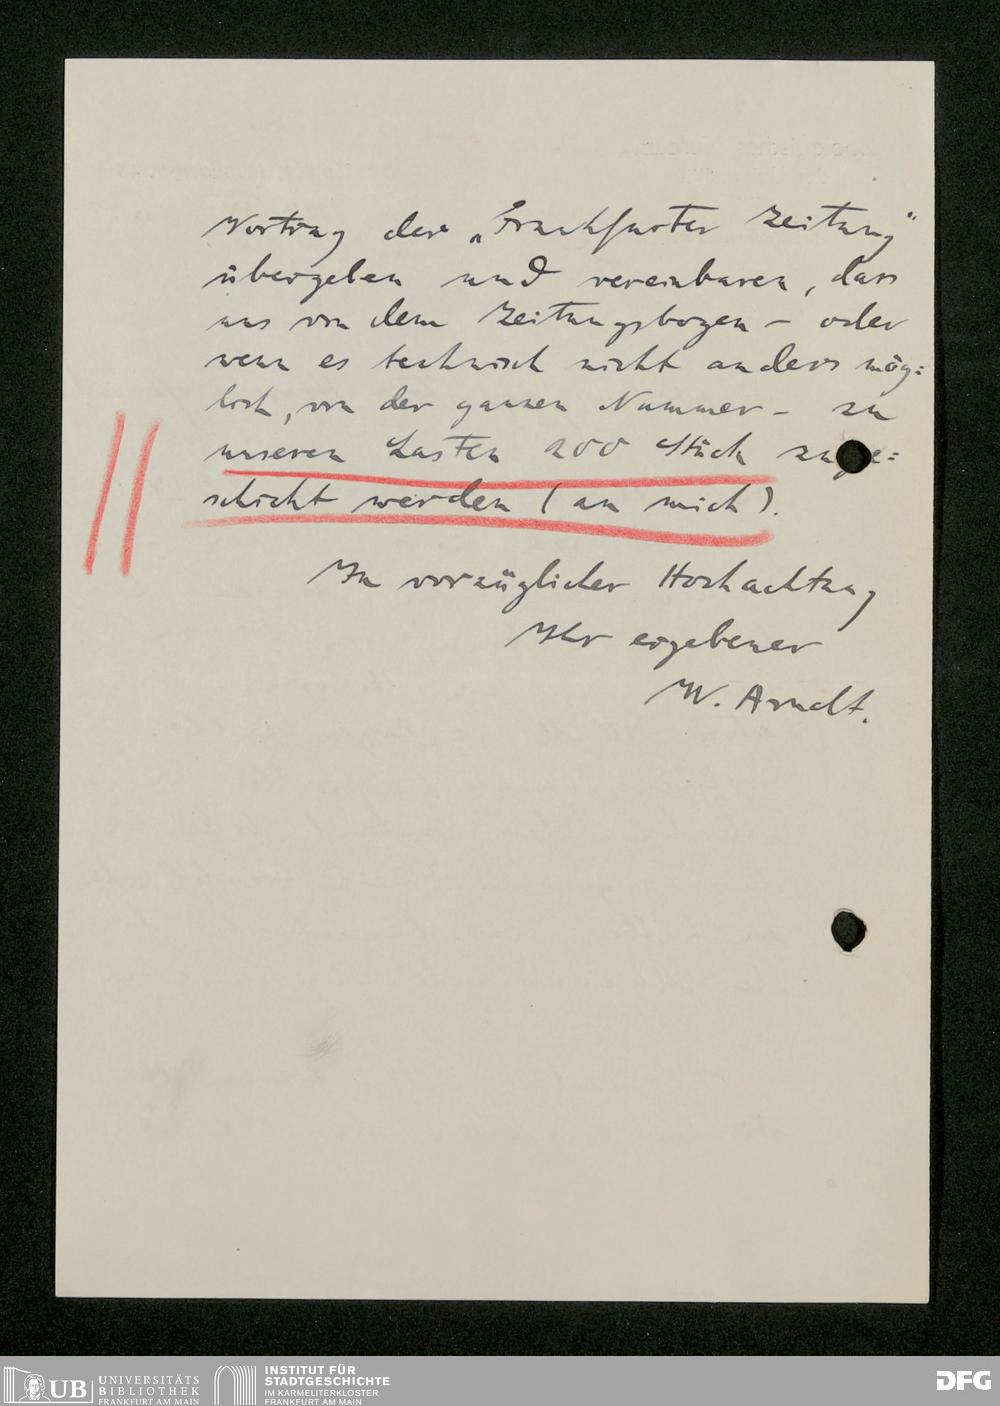 Vortrag der „Frankfurter Zeitung"
übergeben und vereinbaren, dass
uns von dem Zeitungsbogen – oder
wenn es technisch nicht anders mög=
lich, von der ganzen Nummer – zu
unseren Lasten 200 Stück zuge=
schickt werden (an mich).
In vorzüglicher Hochachtung
Ihr ergebener
W. Arndt.
UB UNIVERSITÄTS
BIBLIOTHEK
FRANKFURT AM MAIN
INSTITUT FÜR
STADTGESCHICHTE
IM KARMELITERKLOSTER
FRANKFURT AM MAIN
DFG